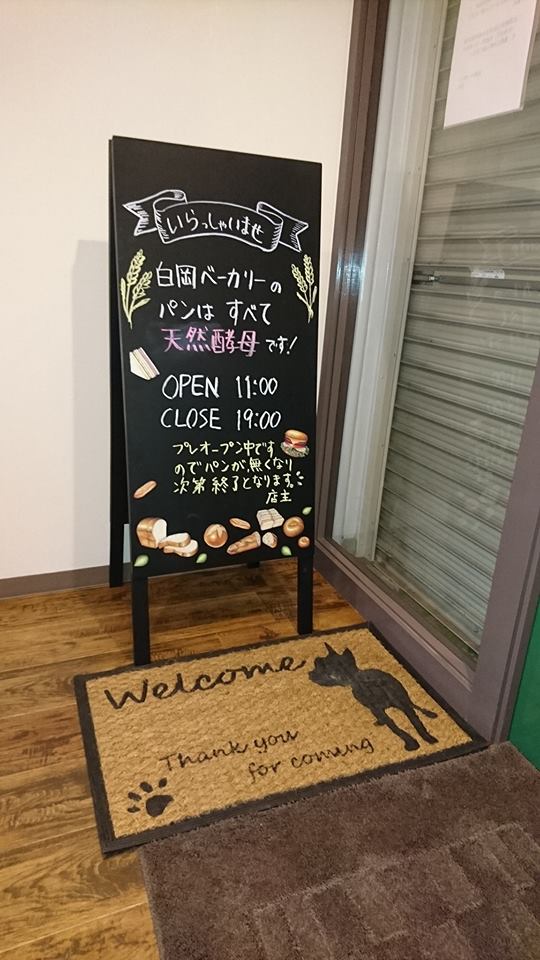 いらっしゃいませ
白岡ベーカリーの
パンは すべて
天然酵母です!
OPEN 11:00
CLOSE 19:00
プレオープン中です
のでパンが無くなり
次第終了となります。
店主
Welcome
Thank you
for coming